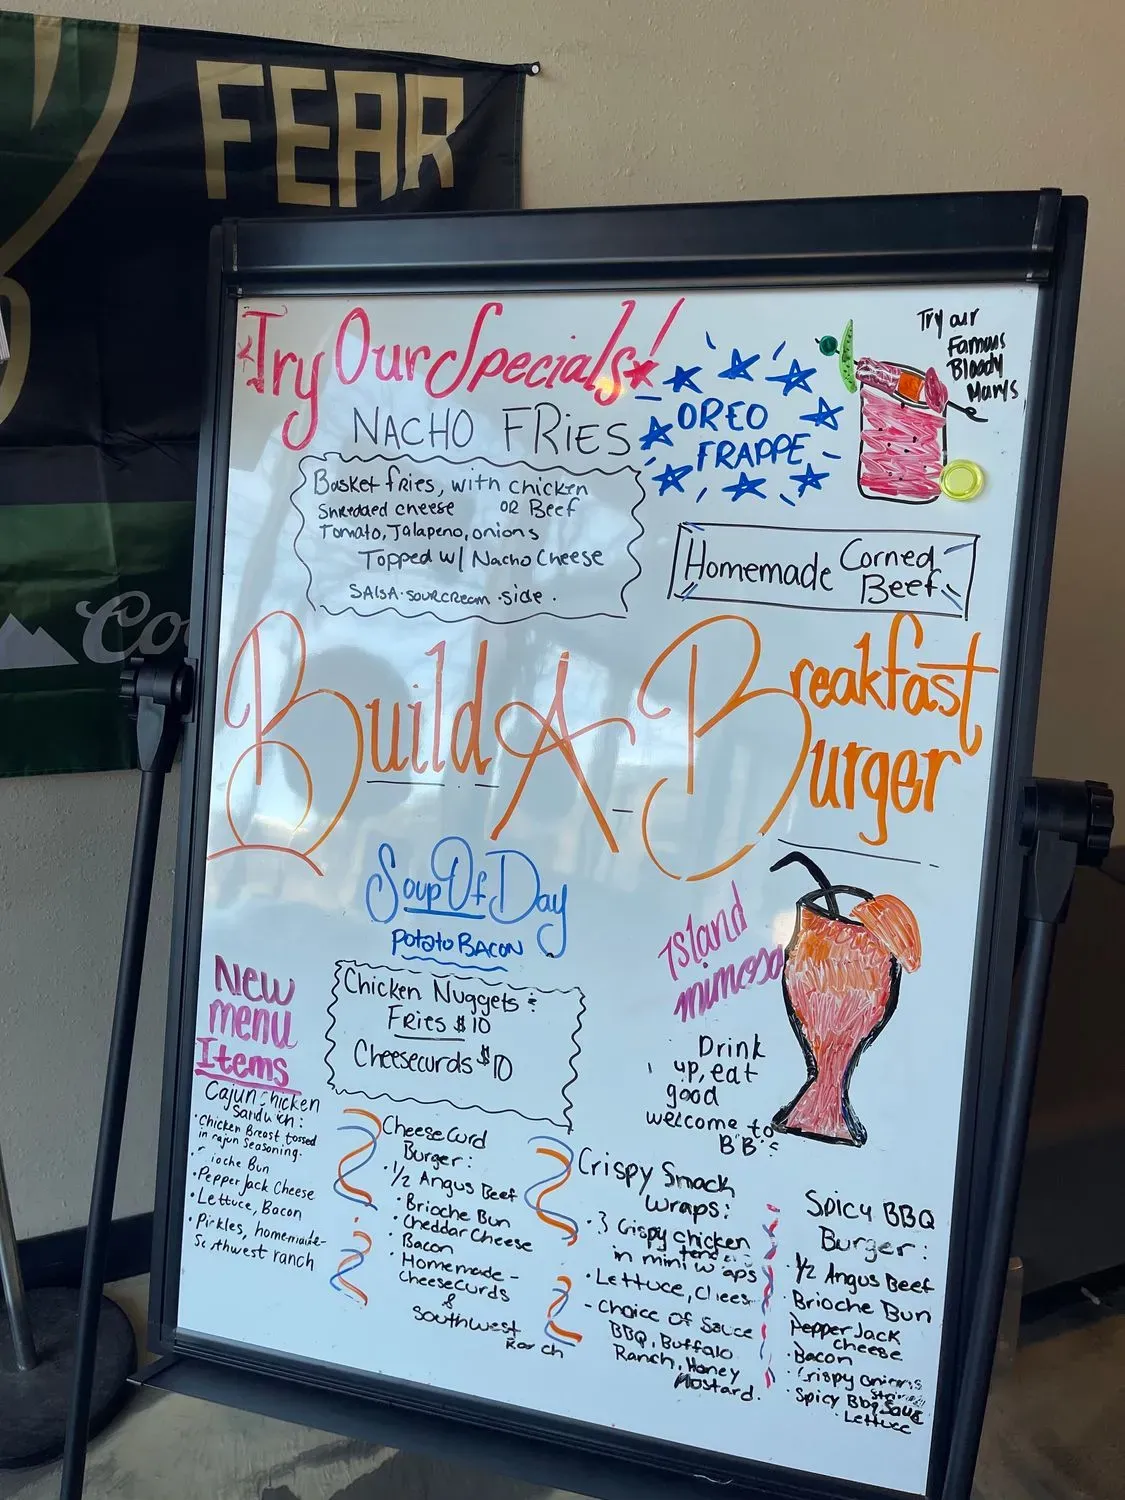 FEAR
Try Our Specials!
NACHO FRIES
Basket fries, with chicken
Shredded cheese OR Beef
Tomato, Jalapeno, onions
Topped w/ Nacho Cheese
SALSA · SOURCREAM · side .
OREO
FRAPPE
Try our
Famous
Bloody
Marys
Homemade Corned
Beef
Build-A-Breakfast
Burger
Soup Of Day
Potato BACON
Island
mimosa
Drink
up, eat
good
welcome to
BB's
New
menu
Items
Chicken Nuggets &
Fries $10
Cheesecurds $10
Cajun Chicken
Sandwich:
· Chicken Breast tossed
in cajun Seasoning.
Bun
· Pepper Jack Cheese
· Lettuce, Bacon
· Pickles, homemade-
Southwest ranch
Cheese Curd
Burger:
· 1/2 Angus Beef
· Brioche Bun
· Cheddar Cheese
· Bacon
· Homemade-
Cheesecurds
&
Southwest
Ranch
Crispy Snack
Wraps:
· 3 Crispy chicken
in mini wraps
· Lettuce, Cheese
- Choice of Sauce
BBQ, Buffalo
Ranch, Honey
Mustard.
Spicy BBQ
Burger:
· 1/2 Angus Beef
· Brioche Bun
Pepper Jack
Cheese
· Bacon
· Crispy onions
· Spicy Bbq Sauce
· Lettuce